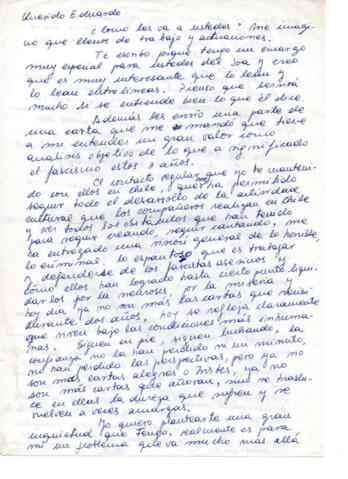 Querido Eduardo:
¿Cómo les va a ustedes? Me imagi-
no que llenos de trabajo y actuaciones.
Te escribo porque tengo un encargo
muy especial para ustedes del Joa y creo
que es muy interesante que lo lean y
lo lean entrelíneas. Pienso que servirá
mucho si se entiende bien lo que él dice.
Además les envío una parte de
una carta que me mandó que tiene
a mi entender un gran valor como
análisis objetivo de lo que a significado
el fascismo estos 3 años.
El contacto regular que yo he manteni-
do con ellos en Chile, me ha permitido
seguir todo el desarrollo de la actividad
cultural que los compañeros realizan en Chile
y ver todos los obstáculos que han tenido
para seguir creando, seguir cantando, me
ha entregado una visión general de lo horrible,
lo criminal, lo espantoso que es trabajar
y defenderse de los fascistas asesinos y
cómo ellos han logrado hasta cierto punto liqui-
darlos por la neurosis, por la miseria y
hoy día ya no son más las cartas que recibí
durante dos años, hoy se refleja claramente
que viven bajo las condiciones más inhuma-
nas. Siguen en pie, siguen luchando, la
confianza no la han perdido ni un minuto,
no han perdido las perspectivas, pero ya no
son más cartas alegres o tristes, ya no
son más cartas que añoran, sino se traslu-
ce en ellas la dureza que sufren y se
vuelven a veces amargas.
Yo quiero plantearte una gran
inquietud que tengo, realmente es para
mí un problema que va mucho más allá